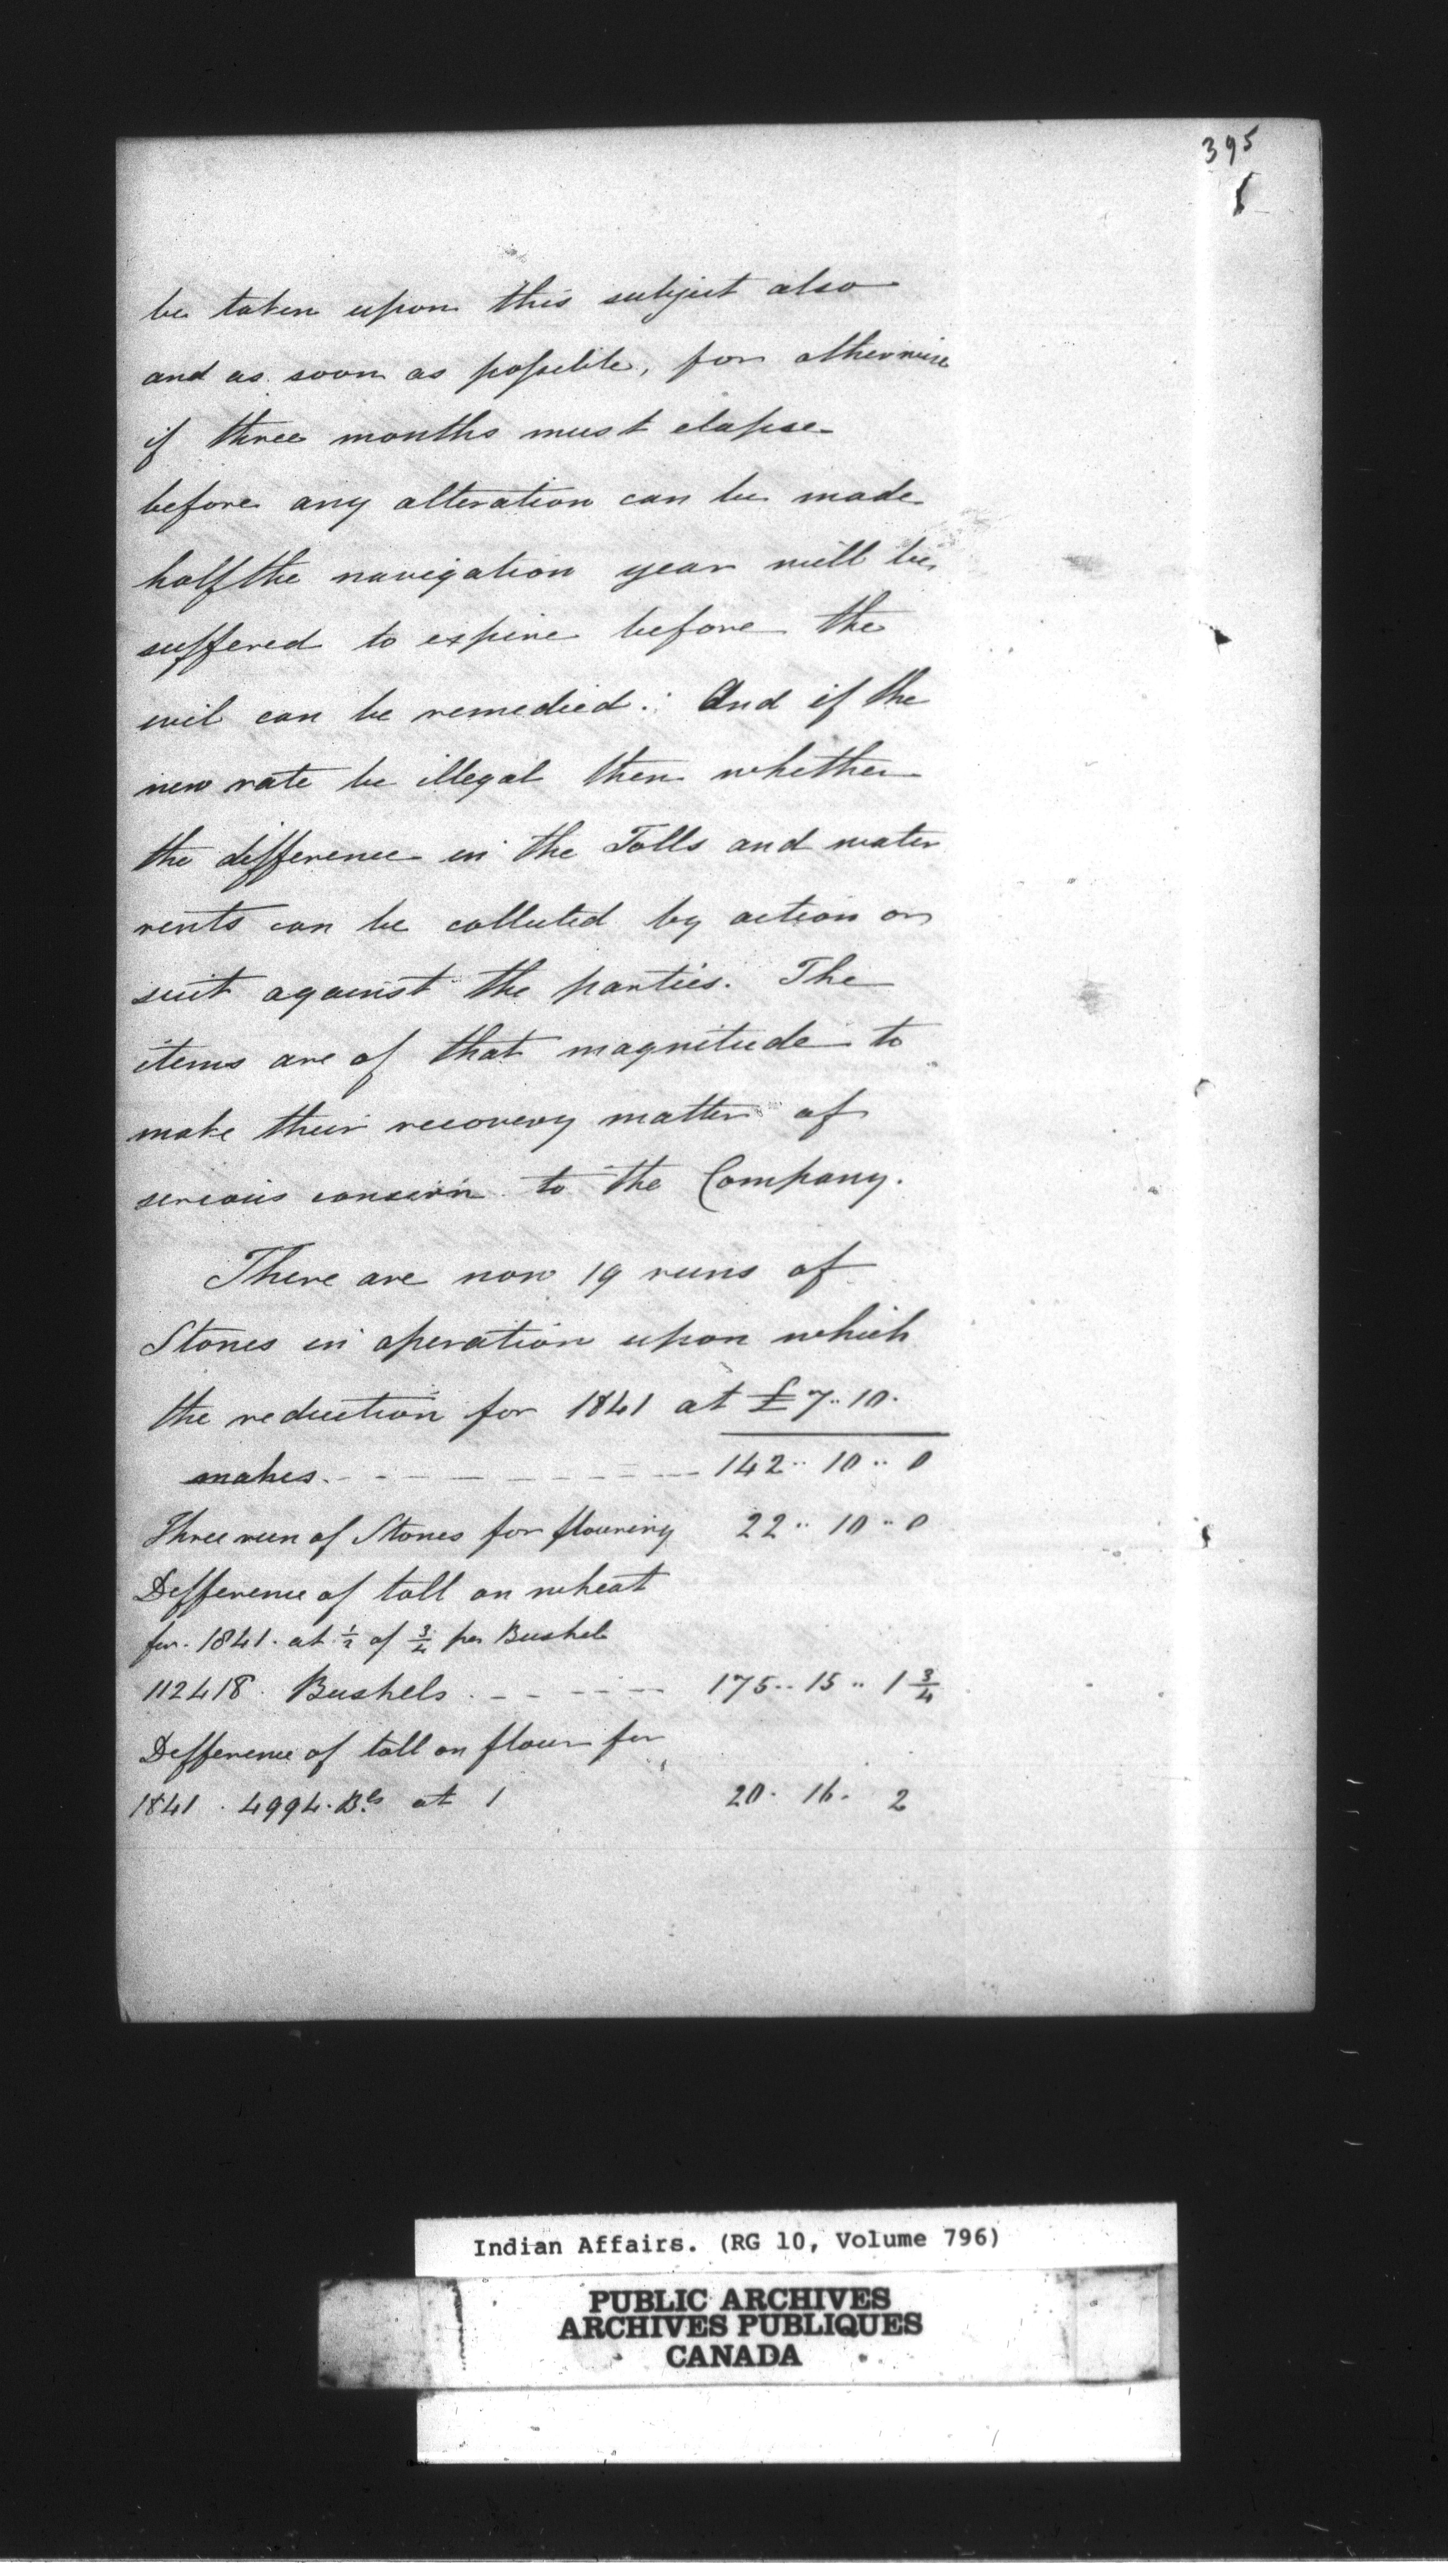 395
be taken upon this subject also
and as soon as possible, for otherwise
if three months must elapse
before any alteration can be made
half the navigation year will be
suffered to expire before the
evil can be remedied: And if the
new rate be illegal then whether
the difference in the Tolls and water
rents can be collected by action or
suit against the parties. The
items are of that magnitude to
make their recovery matter of
serious concern to the Company.
There are now 19 runs of
Stones in operation upon which
the reduction for 1841 at £7..10.
makes - - - - - - - - - 142.. 10.. 0
Three run of Stones for flouring 22.. 10.. 0
Difference of toll on wheat
for 1841. at ½ of ¾ per Bushel
112418. Bushels. - - - - - 175.. 15.. 1 ¾
Difference of toll on flour for
1841. 4994. Bls at 1 20. 16. 2
Indian Affairs. (RG 10, Volume 796)
PUBLIC ARCHIVES
ARCHIVES PUBLIQUES
CANADA